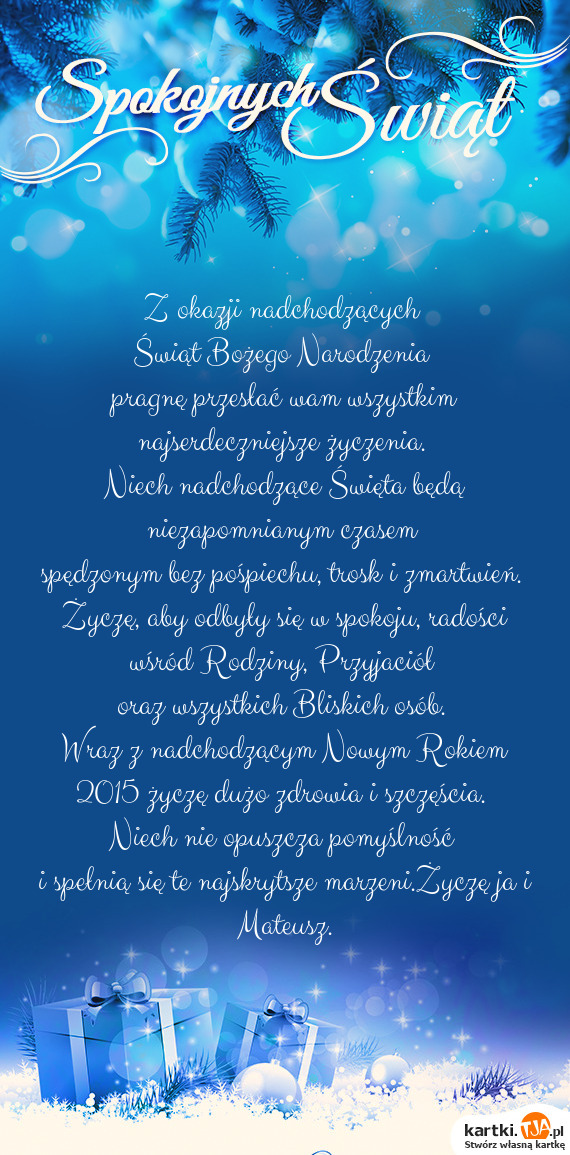 Spokojnych Świąt
Z okazji nadchodzących
Świąt Bożego Narodzenia
pragnę przesłać wam wszystkim
najserdeczniejsze życzenia.
Niech nadchodzące Święta będą
niezapomnianym czasem
spędzonym bez pośpiechu, trosk i zmartwień.
Życzę, aby odbyły się w spokoju, radości
wśród Rodziny, Przyjaciół
oraz wszystkich Bliskich osób.
Wraz z nadchodzącym Nowym Rokiem
2015 życzę dużo zdrowia i szczęścia.
Niech nie opuszcza pomyślność
i spełnią się te najskrytsze marzeni.Życzę ja i
Mateusz.
kartki.TJA.pl
Stwórz własną kartkę